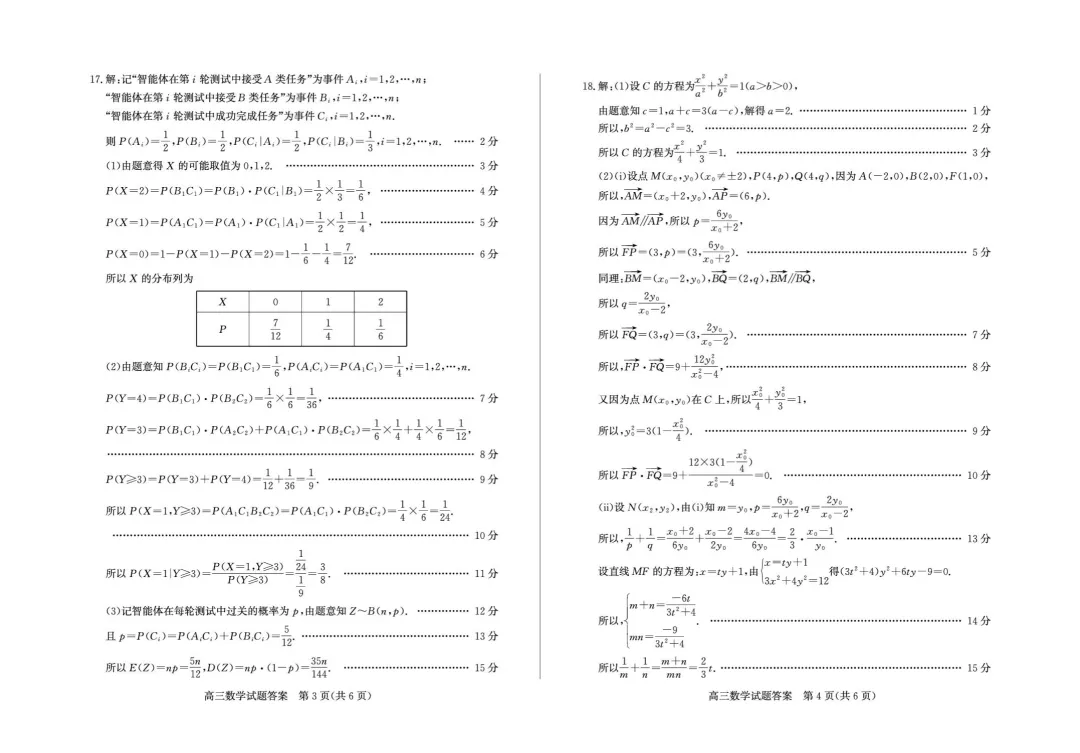 17.解:记“智能体在第 i 轮测试中接受 A 类任务”为事件 Aᵢ,i=1,2,…,n;
“智能体在第 i 轮测试中接受 B 类任务”为事件 Bᵢ,i=1,2,…,n;
“智能体在第 i 轮测试中成功完成任务”为事件 Cᵢ,i=1,2,…,n.
则 P(Aᵢ)=1/2,P(Bᵢ)=1/2,P(Cᵢ|Aᵢ)=1/2,P(Cᵢ|Bᵢ)=1/3,i=1,2,…,n. …… 2 分
(1)由题意得 X 的可能取值为 0,1,2. …… 3 分
P(X=2)=P(B₁C₁)=P(B₁)·P(C₁|B₁)=1/2×1/3=1/6, …… 4 分
P(X=1)=P(A₁C₁)=P(A₁)·P(C₁|A₁)=1/2×1/2=1/4, …… 5 分
P(X=0)=1-P(X=1)-P(X=2)=1-1/6-1/4=7/12. …… 6 分
所以 X 的分布列为
X 0 1 2
P 7/12 1/4 1/6
(2)由题意知 P(BᵢCᵢ)=P(B₁C₁)=1/6,P(AᵢCᵢ)=P(A₁C₁)=1/4,i=1,2,…,n.
P(Y=4)=P(B₁C₁)·P(B₂C₂)=1/6×1/6=1/36, …… 7 分
P(Y=3)=P(B₁C₁)·P(A₂C₂)+P(A₁C₁)·P(B₂C₂)=1/6×1/4+1/4×1/6=1/12,
…… 8 分
P(Y≥3)=P(Y=3)+P(Y=4)=1/12+1/36=1/9. …… 9 分
所以 P(X=1,Y≥3)=P(A₁C₁B₂C₂)=P(A₁C₁)·P(B₂C₂)=1/4×1/6=1/24.
…… 10 分
所以 P(X=1|Y≥3)=P(X=1,Y≥3)/P(Y≥3)=(1/24)/(1/9)=3/8. …… 11 分
(3)记智能体在每轮测试中过关的概率为 p,由题意知 Z~B(n,p). …… 12 分
且 p=P(Cᵢ)=P(AᵢCᵢ)+P(BᵢCᵢ)=5/12. …… 13 分
所以 E(Z)=np=5n/12,D(Z)=np·(1-p)=35n/144. …… 15 分
高三数学试题答案 第 3 页(共 6 页)
18.解:(1)设 C 的方程为x²/a²+y²/b²=1(a>b>0),
由题意知 c=1,a+c=3(a-c),解得 a=2. …… 1 分
所以,b²=a²-c²=3. …… 2 分
所以 C 的方程为x²/4+y²/3=1. …… 3 分
(2)(i)设点 M(x₀,y₀)(x₀≠±2),P(4,p),Q(4,q),因为 A(-2,0),B(2,0),F(1,0),
所以,AM→=(x₀+2,y₀),AP→=(6,p).
因为 AM→∥AP→,所以 p=6y₀/(x₀+2),
所以 FP→=(3,p)=(3,6y₀/(x₀+2)). …… 5 分
同理:BM→=(x₀-2,y₀),BQ→=(2,q),BM→∥BQ→,
所以 q=2y₀/(x₀-2),
所以 FQ→=(3,q)=(3,2y₀/(x₀-2)). …… 7 分
所以,FP→·FQ→=9+12y₀²/(x₀²-4), …… 8 分
又因为点 M(x₀,y₀)在 C 上,所以x₀²/4+y₀²/3=1,
所以,y₀²=3(1-x₀²/4). …… 9 分
所以 FP→·FQ→=9+12×3(1-x₀²/4)/(x₀²-4)=0. …… 10 分
(ii)设 N(x₂,y₂),由(i)知 m=y₀,p=6y₀/(x₀+2),q=2y₀/(x₀-2),
所以,1/p+1/q=(x₀+2)/6y₀+(x₀-2)/2y₀=(4x₀-4)/6y₀=2/3·(x₀-1)/y₀. …… 13 分
设直线 MF 的方程为:x=ty+1,由{x=ty+1, 3x²+4y²=12 得(3t²+4)y²+6ty-9=0.
所以,{m+n=-6t/(3t²+4), mn=-9/(3t²+4). …… 14 分
所以1/m+1/n=(m+n)/mn=2/3t. …… 15 分
高三数学试题答案 第 4 页(共 6 页)